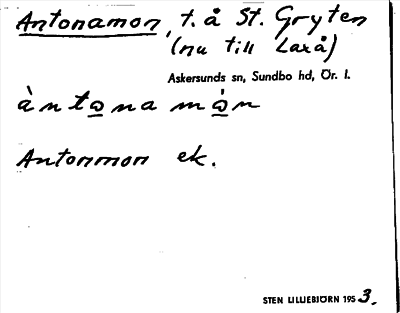 Antonamon, t. å St. Gryten
(nu till Laxå)
Askersunds sn, Sundbo hd, Ör. l.
ànto̲na mȯ̲n
Antonmon ek.
STEN LILLIEBJÖRN 1953.